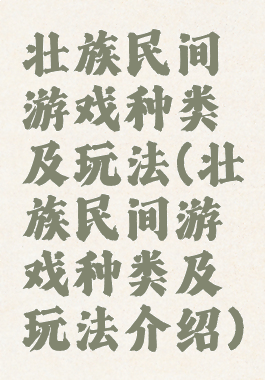 壮族民间
游戏种类
及玩法(壮
族民间游
戏种类及
玩法介绍)